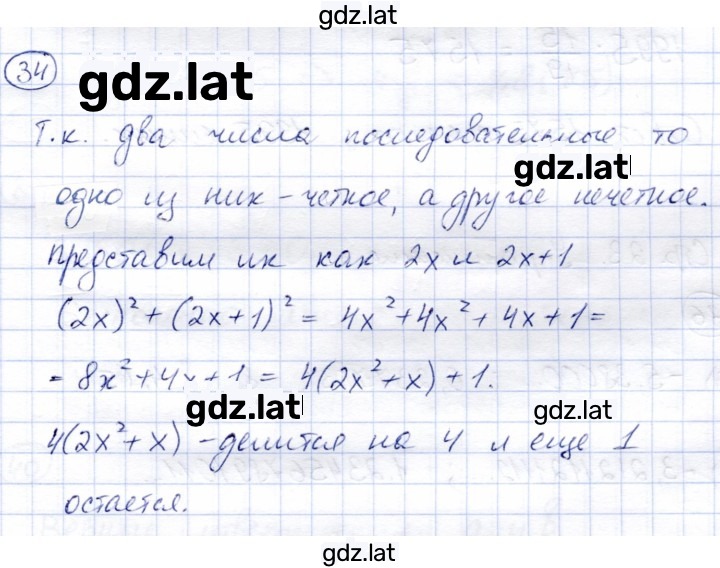 gdz.lat
34
gdz.lat
Т.к. два числа последовательные то
gdz.lat
одно из них - четное, а другое нечетное.
Представим их как 2x и 2x+1
(2x)² + (2x+1)² = 4x² + 4x² + 4x + 1 =
= 8x² + 4x + 1 = 4(2x² + x) + 1.
gdz.lat gdz.lat
4(2x² + x) - делится на 4 и еще 1
остается.
gdz.lat